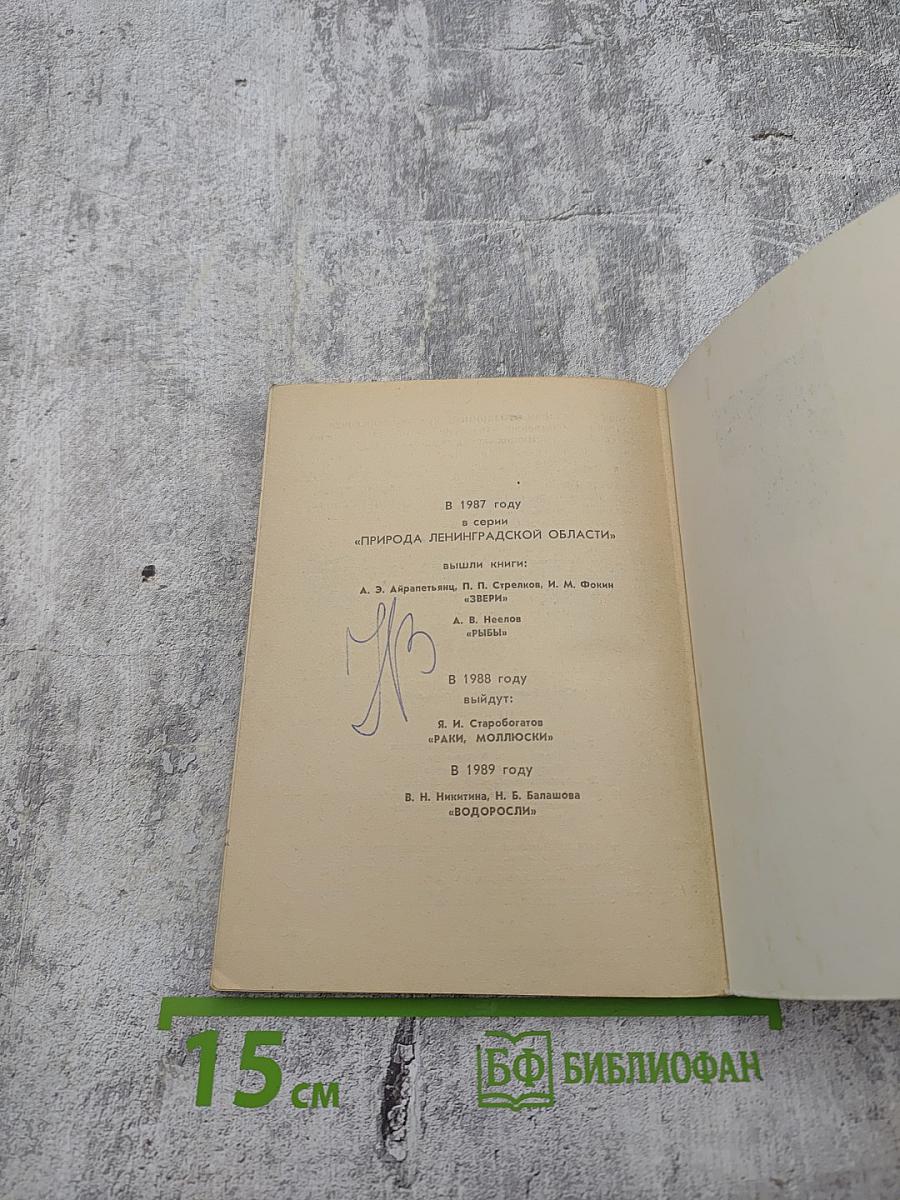 В 1987 году
в серии
«ПРИРОДА ЛЕНИНГРАДСКОЙ ОБЛАСТИ»
вышли книги:
А. Э. Айрапетьянц, П. П. Стрелков, И. М. Фокин
«ЗВЕРИ»
А. В. Неелов
«РЫБЫ»
В 1988 году
выйдут:
Я. И. Старобогатов
«РАКИ, МОЛЛЮСКИ»
В 1989 году
В. Н. Никитина, Н. Б. Балашова
«ВОДОРОСЛИ»
15 см
БФ БИБЛИОФАН